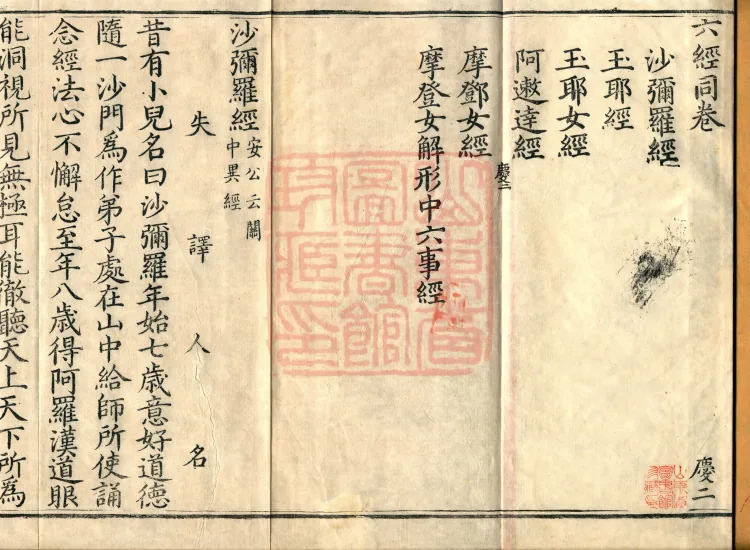 六經同卷 慶二
沙彌羅經
玉耶經
玉耶女經
阿遬達經
慶二
摩鄧女經
摩登女解形中六事經
山東省
圖書館
沙彌羅經 安公云關
中異經
失譯人名
昔有小兒名曰沙彌羅年始七歲意好道德
隨一沙門爲作弟子處在山中給師所使誦
念經法心不懈怠至年八歲得阿羅漢道眼
能洞視所見無極耳能徹聽天上天下所爲